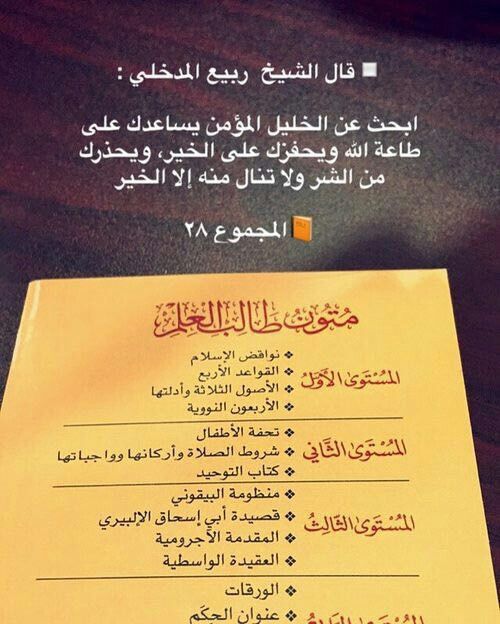 قال الشيخ ربيع المدخلي :
ابحث عن الخليل المؤمن يساعدك على
طاعة الله ويحفزك على الخير، ويحذرك
من الشر ولا تنال منه إلا الخير
المجموع ٢٨
متون طالب العلم
المستوى الأول
نواقض الإسلام
القواعد الأربع
الأصول الثلاثة وأدلتها
الأربعون النووية
المستوى الثاني
تحفة الأطفال
شروط الصلاة وأركانها وواجباتها
كتاب التوحيد
المستوى الثالث
منظومة البيقوني
قصيدة أبي إسحاق الإلبيري
المقدمة الآجرومية
العقيدة الواسطية
المستوى الرابع
الورقات
عنوان الحكم